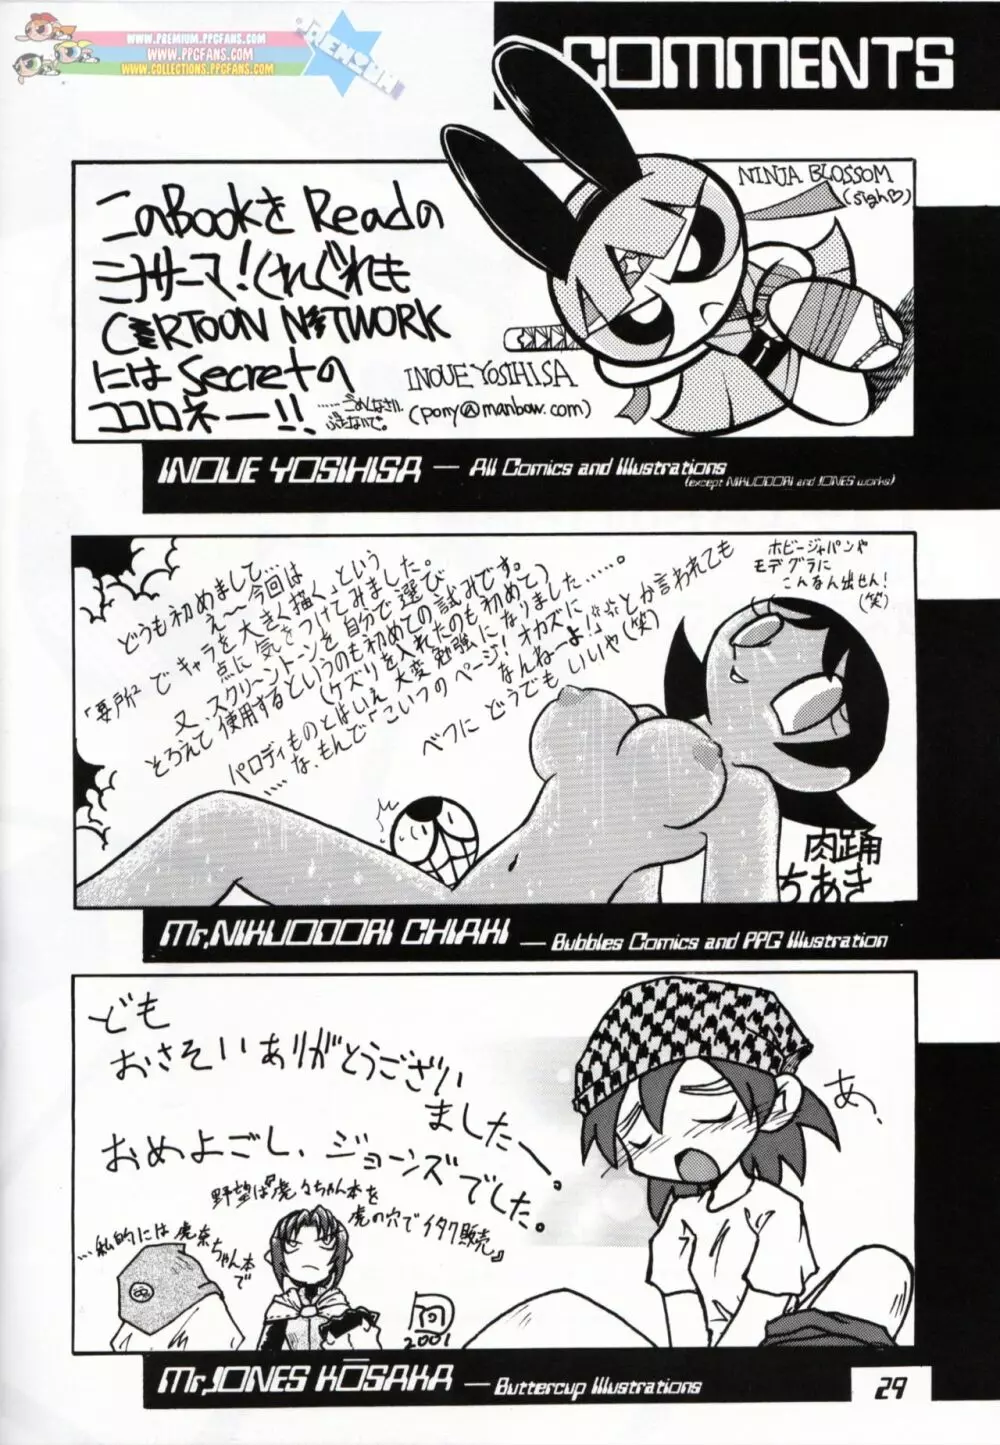 WWW.PREMIUM.PPGFANS.COM
WWW.PPGFANS.COM
WWW.COLLECTIONS.PPGFANS.COM
PREMIUM
COMMENTS
NINJA BLOSSOM
(sigh♡)
このBookを Readの
ミナサーマ!くれぐれも
CERTOON NETWORK
には Secretの
ココロネー!!
……ごめんなさい。
ぶたないで。
INOUE YOSIHISA
(pony@manbow.com)
INOUE YOSIHISA — All Comics and Illustrations
(except NIKUODORI and JONES works)
どうも初めまして…
え〜今回は
「要所」でキャラを大きく描く、という
点に気をつけてみました。
又、スクリーントーンを自分で選び
そろえて使用するというのも初めての試みです。
(ケズリを入れたのも初めて)
パロディものとはいえ大変勉強になりました……。
……な、もんで「こいつのページ!オカズに
なんねーよ!」とか言われても
べつに どうでもいいや(笑)
ホビージャパンや
モデグラに
こんなん出せん!
(笑)
肉踊
ちあき
Mr,NIKUODORI CHIAKI — Bubbles Comics and PPG Illustration
ども
おさそいありがとうござい
ましたー。
おめよごし、ジョーンズでした。
野望は『虎々ちゃん本を
虎の穴でイタク販売』
…私的には虎奈ちゃん本
で
あ、
2001
Mr,JONES KŌSAKA — Buttercup Illustrations
29